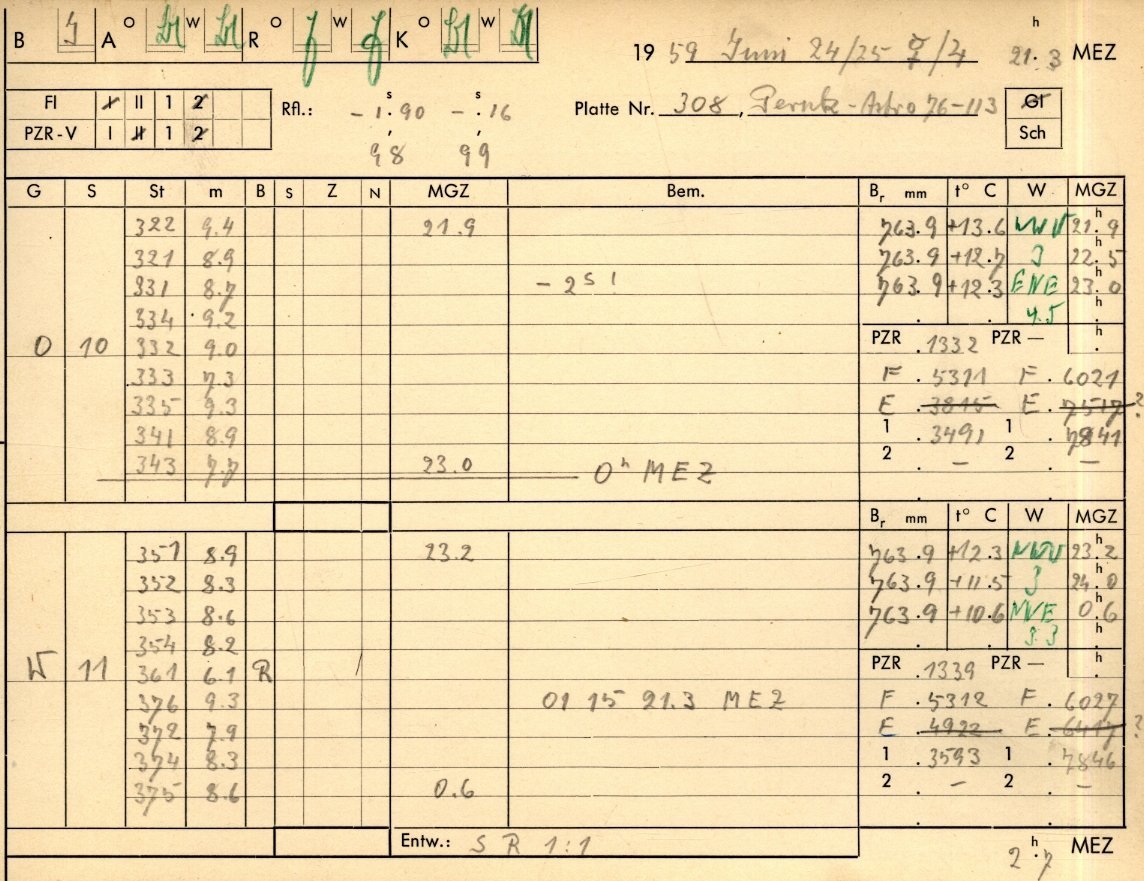 B J A O Bl W Bl R O J W J K O Bl W Bl
19 59 Juni 24/25 ☿/♃ 21 h . 3 MEZ
FI I II 1 2
PZR-V I II 1 2
Rfl.: - 1 s . 90 - s . 16
, 98 , 99
Platte Nr. 308, Perutz-Astro 76-113
Gl
Sch
G S St m B S Z N MGZ Bem. Br mm t° C W MGZ
322 9.4 21.9 763.9 +13.6 21 h . 9
321 8.9 763.9 +12.7 3 22 h . 5
331 8.7 - 2 s 1 763.9 +12.3 ENE 23 h . 0
334 9.2 4.5 h .
O 10 332 9.0 PZR .1332 PZR - h .
333 7.3 F .5311 F .6021
335 9.3 E .3815 E .7517?
341 8.9 1 .3491 1 .7841
343 7.7 23.0 0 h MEZ 2 . - 2 . -
Br mm t° C W MGZ
351 8.9 23.2 763.9 +12.3 23 h . 2
352 8.3 763.9 +11.5 3 24 h . 0
353 8.6 763.9 +10.6 NNE 0 h . 6
354 8.2 3.3 h .
W 11 361 6.1 R / PZR .1339 PZR - h .
376 9.3 01 15 21.3 MEZ F .5312 F .6027
372 7.9 E .4922 E .6417?
374 8.3 1 .3593 1 .7846
375 8.6 0.6 2 . - 2 . -
Entw.: S R 1:1
2 h . 7 MEZ